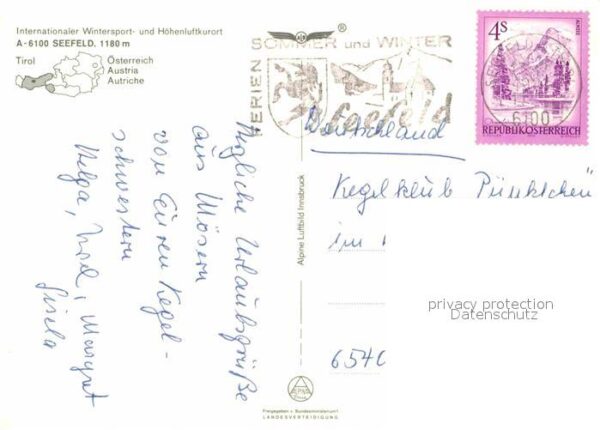 Internationaler Wintersport- und Höhenluftkurort
A-6100 SEEFELD. 1180 m
Tirol
Österreich
Austria
Autriche
FERIEN
SOMMER und WINTER
Seefeld
4 S
6100
REPUBLIK ÖSTERREICH
Deutschland
Kegelklub Pünktchen
im
privacy protection
Datenschutz
654
Alpine Luftbild Innsbruck
Freigegeben v. Bundesministerium f.
LANDESVERTEIDIGUNG
Urlaubsgrüße
aus Mösern
von Euren Kegel-
schwestern
Helga, Margret
Gisela